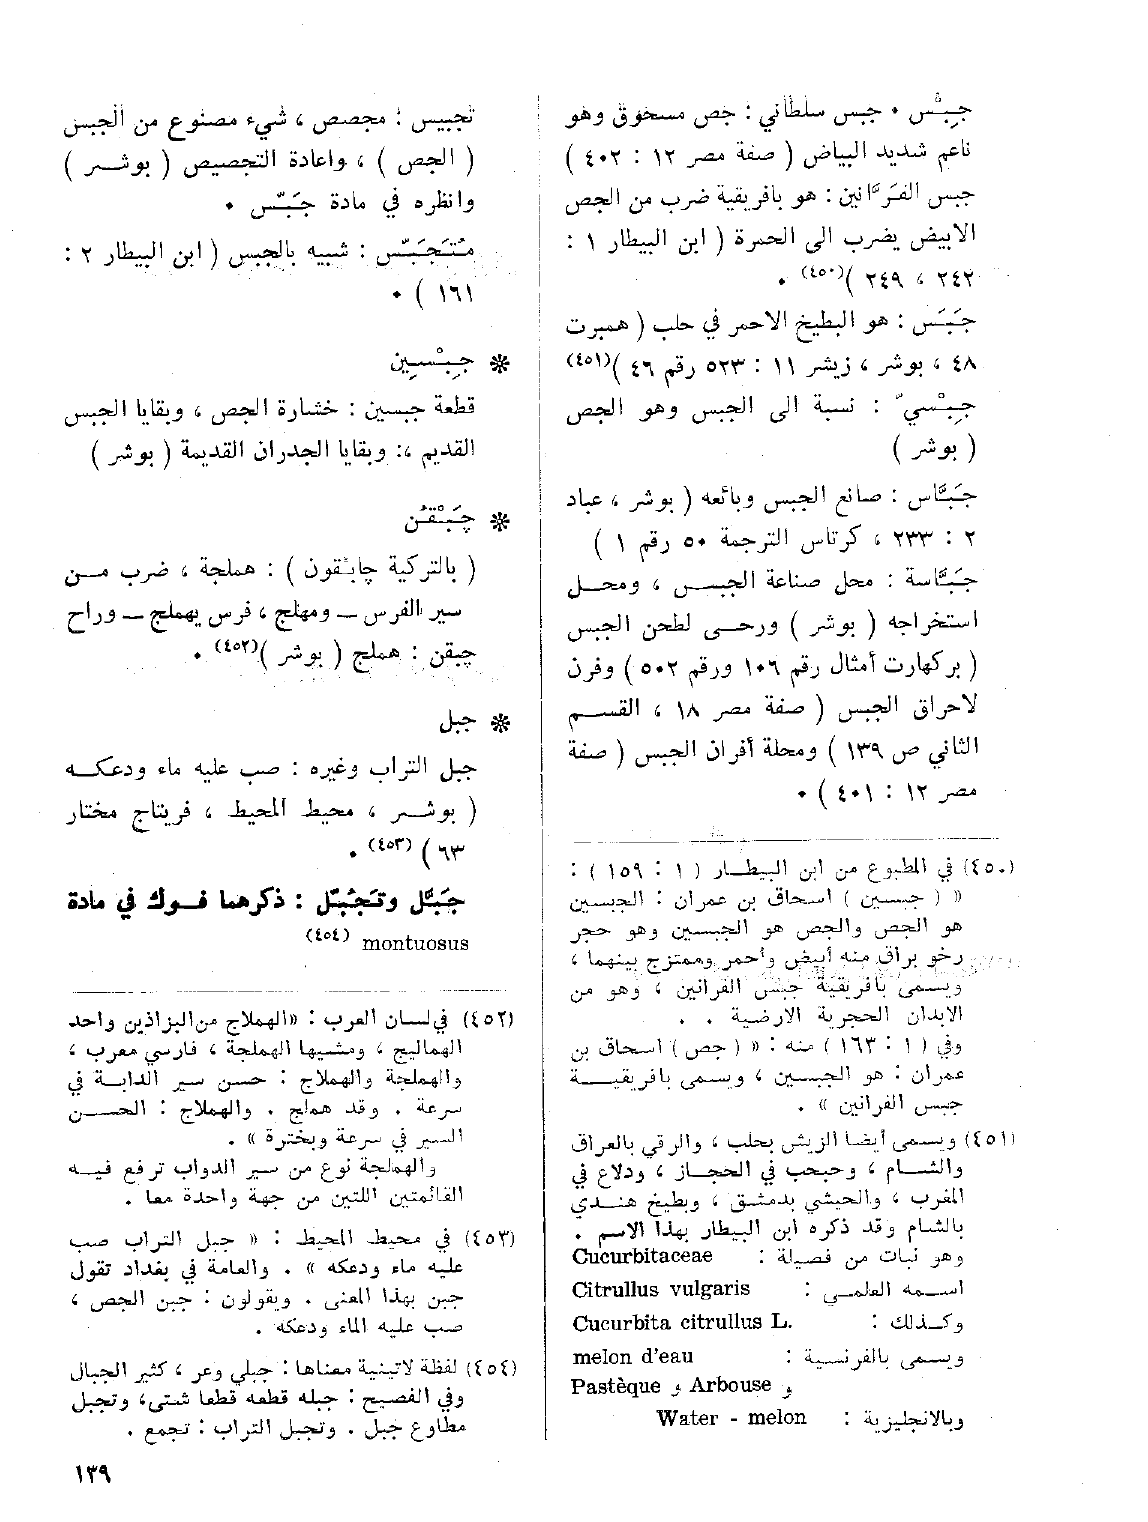 جِبْس • جبس سلطاني : جص مسحوق وهو
ناعم شديد البياض ( صفة مصر ١٢ : ٤٠٢ )
جبس الفَرَّانين : هو بافريقية ضرب من الجص
الابيض يضرب الى الحمرة ( ابن البيطار ١ :
٢٤٢ ، ٢٤٩ )(٤٥٠) •
جَبَس : هو البطيخ الاحمر في حلب ( همبرت
٤٨ ، بوشر ، زيشر ١١ : ٥٢٣ رقم ٤٦ )(٤٥١)
جِبْسيّ : نسبة الى الجبس وهو الجص
( بوشر )
جَبَّاس : صانع الجبس وبائعه ( بوشر ، عباد
٢ : ٢٣٣ ، كرتاس الترجمة ٥٠ رقم ١ )
جَبَّاسة : محل صناعة الجبس ، ومحل
استخراجه ( بوشر ) ورحى لطحن الجبس
( بركهارت أمثال رقم ١٠٦ ورقم ٥٠٢ ) وفرن
لاحراق الجبس ( صفة مصر ١٨ ، القسم
الثاني ص ١٣٩ ) ومحلة أفران الجبس ( صفة
مصر ١٢ : ٤٠١ ) •
(٤٥٠) في المطبوع من ابن البيطار ( ١ : ١٥٩ ) :
« ( جبسين ) اسحاق بن عمران : الجبسين
هو الجص والجص هو الجبسين وهو حجر
رخو براق منه أبيض وأحمر وممتزج بينهما ،
ويسمى بافريقية جبس الفرانين ، وهو من
الابدان الحجرية الارضية . .
وفي ( ١ : ١٦٣ ) منه : « ( جص ) اسحاق بن
عمران : هو الجبسين ، ويسمى بافريقية
جبس الفرانين » .
(٤٥١) ويسمى أيضا الزبش بحلب ، والرقي بالعراق
والشام ، وحبحب في الحجاز ، ودلاع في
المغرب ، والحبشي بدمشق ، وبطيخ هندي
بالشام وقد ذكره ابن البيطار بهذا الاسم .
وهو نبات من فصيلة : Cucurbitaceae
اسمه العلمى : Citrullus vulgaris
وكذلك : Cucurbita citrullus L.
ويسمى بالفرنسية : melon d'eau
و Arbouse و Pastèque
وبالانجليزية : Water - melon
تجبيس : مجصص ، شيء مصنوع من الجبس
( الجص ) ، واعادة التجصيص ( بوشر )
وانظره في مادة جَبَّس •
مُتَجَبِّس : شبيه بالجبس ( ابن البيطار ٢ :
١٦١ ) •
❊ جِبْسِين
قطعة جبسين : خشارة الجص ، وبقايا الجبس
القديم ،: وبقايا الجدران القديمة ( بوشر )
❊ جَبَقْن
( بالتركية چابقون ) : هملجة ، ضرب من
سير الفرس ــ ومهلج ، فرس يهملج ــ وراح
چبقن : هملج ( بوشر )(٤٥٢) •
❊ جبل
جبل التراب وغيره : صب عليه ماء ودعكه
( بوشر ، محيط المحيط ، فريتاج مختار
٦٣ ) (٤٥٣) •
جَبَّل وتَجَبَّل : ذكرهما فوك في مادة
montuosus (٤٥٤)
(٤٥٢) في لسان العرب : «الهملاج من البراذين واحد
الهماليج ، ومشيها الهملجة ، فارسي معرب ،
والهملجة والهملاج : حسن سير الدابة في
سرعة . وقد هملج . والهملاج : الحسن
السير في سرعة وبخترة » .
والهملجة نوع من سير الدواب ترفع فيه
القائمتين اللتين من جهة واحدة معا .
(٤٥٣) في محيط المحيط : « جبل التراب صب
عليه ماء ودعكه » . والعامة في بغداد تقول
جبن بهذا المعنى . ويقولون : جبن الجص ،
صب عليه الماء ودعكه .
(٤٥٤) لفظة لاتينية معناها : جبلي وعر ، كثير الجبال
وفي الفصيح : جبله قطعه قطعا شتى، وتجبل
مطاوع جبل . وتجبل التراب : تجمع .
١٣٩